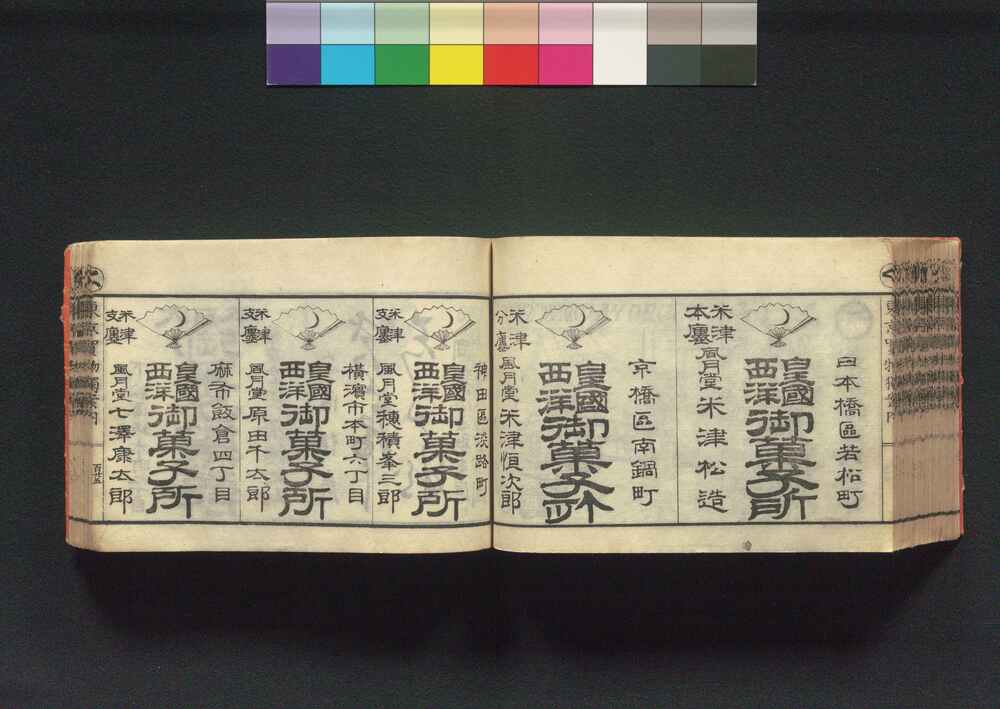 日本橋區若松町
皇國
西洋
御菓子所
米津
本廛
風月堂米津松造
京橋區南鍋町
皇國
西洋
御菓子所
米津
分廛
風月堂米津恒次郎
神田區淡路町
皇國
西洋
御菓子所
米津
支廛
風月堂穂積峯三郎
横濱市本町六丁目
皇國
西洋
御菓子所
米津
支廛
風月堂原田千太郎
麻布飯倉四丁目
皇國
西洋
御菓子所
米津
支廛
風月堂七澤康太郎
百十五